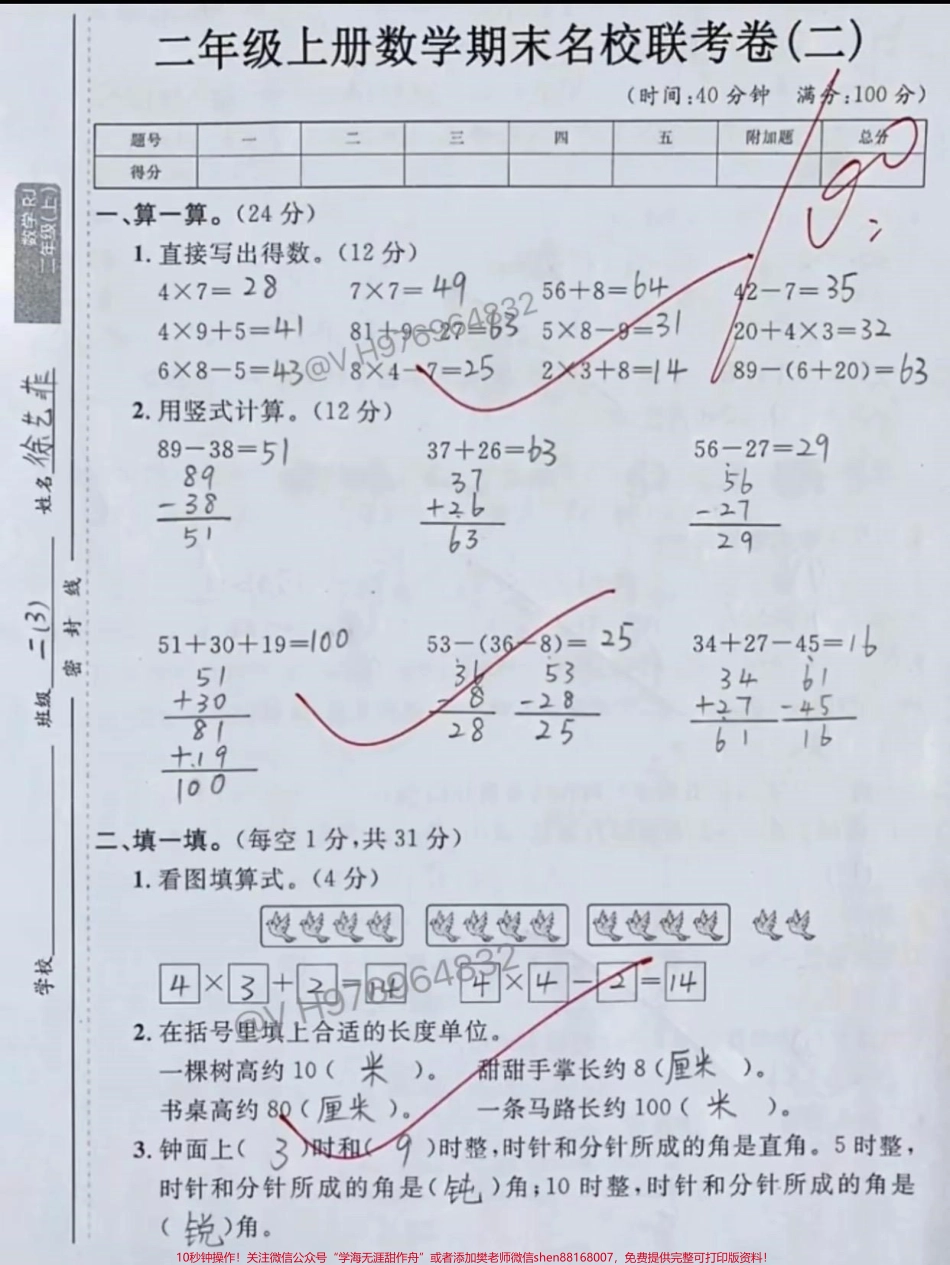 二年级上册数学期末名校联考卷(二)
(时间:40分钟 满分:100分)
题号 二 三 四 五 附加题 总分
得分
数学 RJ
二年级(上)
学校
班级 二(3)
姓名 徐艺菲
密 封 线
一、算一算。(24分)
1.直接写出得数。(12分)
4×7=28 7×7=49 56+8=64 42-7=35
4×9+5=41 81+9-27=63 5×8-9=31 20+4×3=32
6×8-5=43 8×4-7=25 2×3+8=14 89-(6+20)=63
@V.H976964832
2.用竖式计算。(12分)
89-38=51 37+26=63 56-27=29
89 37 56
-38 +26 -27
51 63 29
51+30+19=100 53-(36-8)=25 34+27-45=16
51 36 53 34 61
+30 -8 -28 +27 45
81 28 25 61 16
+19
100
二、填一填。(每空1分,共31分)
1.看图填算式。(4分)
4×3+2=14 4×4-2=14
@V.H976964832
2.在括号里填上合适的长度单位。
一棵树高约10(米)。 甜甜手掌长约8(厘米)。
书桌高约80(厘米)。 一条马路长约100(米)。
3.钟面上(3)时和(9)时整,时针和分针所成的角是直角。5时整,
时针和分针所成的角是(钝)角;10时整,时针和分针所成的角是
(锐)角。
10秒钟操作!关注微信公众号“学海无涯甜作舟”或者添加樊老师微信shen88168007,免费提供完整可打印版资料!